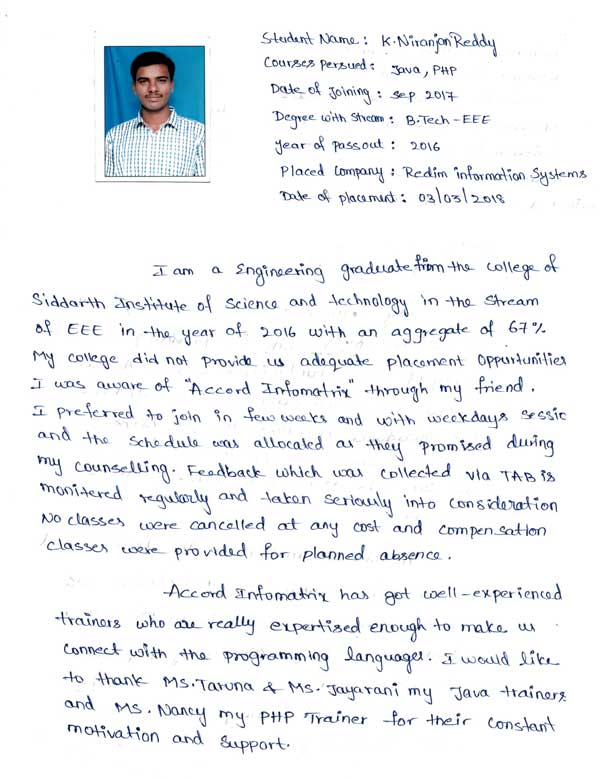 Student Name : K. Niranjan Reddy
Courses Persued : Java, PHP
Date of Joining : Sep 2017
Degree with Stream : B.Tech - EEE
Year of passout : 2016
Placed Company : Redim information Systems
Date of placement : 03/03/2018
I am a Engineering graduate from the college of
Siddarth Institute of Science and technology in the Stream
of EEE in the year of 2016 with an aggregate of 67%
My college did not provide us adequate placement Oppurtunities
I was aware of "Accord Infomatrix" through my friend.
I preferred to join in few weeks and with weekdays sessic
and the schedule was allocated as they promised during
my counselling. Feedback which was collected via TAB is
monitered regularly and taken seriously into consideration
No classes were cancelled at any cost and compensation
classes were provided for planned absence.
Accord Infomatrix has got well-experienced
trainers who are really expertised enough to make us
connect with the programming languages. I would like
to thank Ms. Taruna & Ms. Jayarani my Java trainers
and Ms. Nancy my PHP Trainer for their constant
motivation and support.